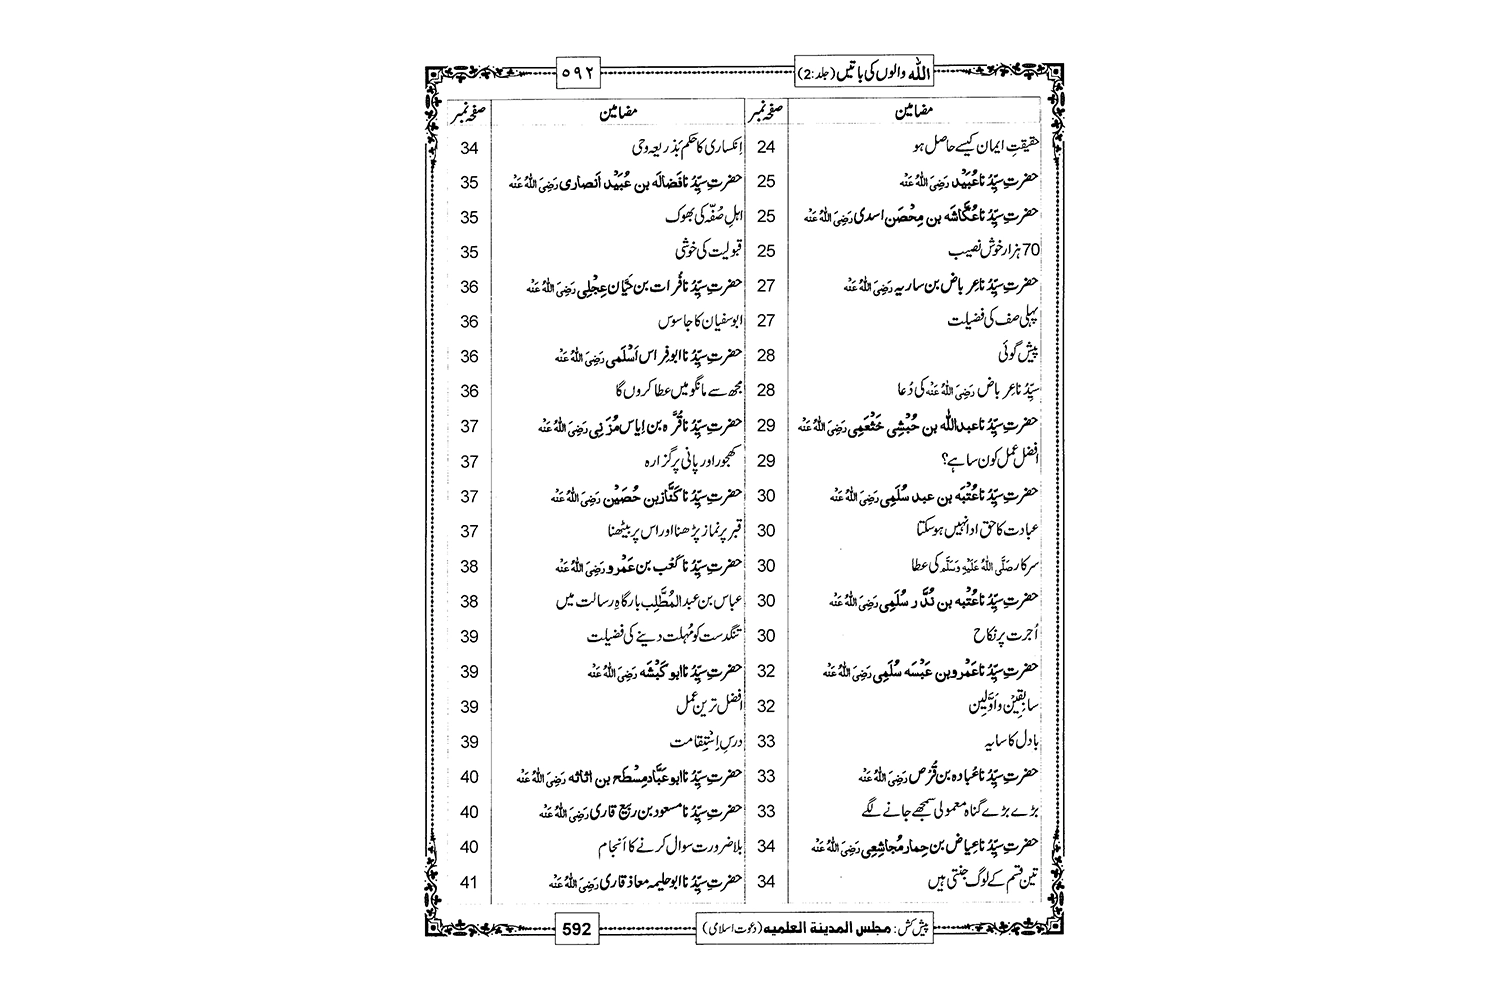 اللہ والوں کی باتیں (جلد:2)
۵۹۲
مضامین صفحہ نمبر
حقیقتِ ایمان کیسے حاصل ہو 24
حضرتِ سیِّدُنا عُبَیْد رَضِیَ اللہُ عَنْہ 25
حضرتِ سیِّدُنا عُکَّاشَہ بن مِحْصَن اسدی رَضِیَ اللہُ عَنْہ 25
70 ہزار خوش نصیب 25
حضرتِ سیِّدُنا عِرباض بن ساریہ رَضِیَ اللہُ عَنْہ 27
پہلی صف کی فضیلت 27
پیش گوئی 28
سیِّدُنا عِرباض رَضِیَ اللہُ عَنْہ کی دُعا 28
حضرتِ سیِّدُنا عبداللہ بن حُبْشِی خَثْعَمِی رَضِیَ اللہُ عَنْہ 29
افضل عمل کون سا ہے؟ 29
حضرتِ سیِّدُنا عُتْبَہ بن عبد سُلَمِی رَضِیَ اللہُ عَنْہ 30
عبادت کا حق ادا نہیں ہو سکتا 30
سرکار صَلَّی اللہُ عَلَیْہِ وَسَلَّم کی عطا 30
حضرتِ سیِّدُنا عُتْبہ بن نُدَّر سُلَمِی رَضِیَ اللہُ عَنْہ 30
اُجرت پر نکاح 30
حضرتِ سیِّدُنا عَمْرو بن عَبْسَہ سُلَمِی رَضِیَ اللہُ عَنْہ 32
سابِقِیْن و اَوَّلِین 32
بادل کا سایہ 33
حضرتِ سیِّدُنا عُبادہ بن قُرْص رَضِیَ اللہُ عَنْہ 33
بڑے بڑے گناہ معمولی سمجھے جانے لگے 33
حضرتِ سیِّدُنا عِیاض بن حِمار مُجاشِعِی رَضِیَ اللہُ عَنْہ 34
تین قسم کے لوگ جنتی ہیں 34
مضامین صفحہ نمبر
اِنکساری کا حکم بَذریعہ وحی 34
حضرتِ سیِّدُنا فَضالَہ بن عُبَیْد اَنصاری رَضِیَ اللہُ عَنْہ 35
اہلِ صُفّہ کی بھوک 35
قبولیت کی خوشی 35
حضرتِ سیِّدُنا فُرات بن حَیَّان عِجْلِی رَضِیَ اللہُ عَنْہ 36
ابوسفیان کا جاسوس 36
حضرتِ سیِّدُنا ابو فِراس اَسْلَمِی رَضِیَ اللہُ عَنْہ 36
مجھ سے مانگو میں عطا کروں گا 36
حضرتِ سیِّدُنا قُرَّہ بن اِیاس مُزَنِی رَضِیَ اللہُ عَنْہ 37
کھجور اور پانی پر گزارہ 37
حضرتِ سیِّدُنا کَنَّاز بن حُصَیْن رَضِیَ اللہُ عَنْہ 37
قبر پر نماز پڑھنا اور اس پر بیٹھنا 37
حضرتِ سیِّدُنا کَعْب بن عَمْرو رَضِیَ اللہُ عَنْہ 38
عباس بن عبد المُطَّلِب بارگاہِ رسالت میں 38
تنگدست کو مُہلت دینے کی فضیلت 39
حضرتِ سیِّدُنا ابو کَبْشَہ رَضِیَ اللہُ عَنْہ 39
افضل ترین عمل 39
درسِ اِسْتِقامت 39
حضرتِ سیِّدُنا ابو عَبَّاد مِسْطَح بن اثاثہ رَضِیَ اللہُ عَنْہ 40
حضرتِ سیِّدُنا مسعود بن ربیع قاری رَضِیَ اللہُ عَنْہ 40
بلا ضرورت سوال کرنے کا اَنجام 40
حضرتِ سیِّدُنا ابو حلیمہ معاذ قاری رَضِیَ اللہُ عَنْہ 41
پیش کش: مجلس المدینۃ العلمیہ (دعوت اسلامی)
592